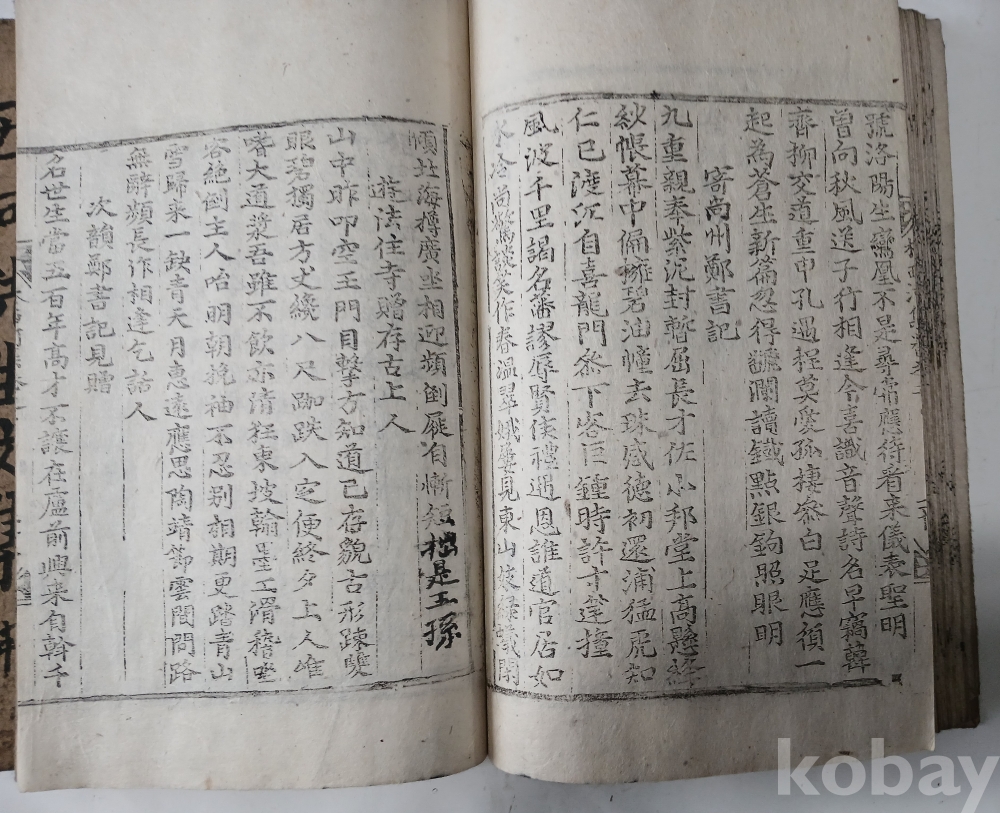 號洛陽生鸞鳳不是尋常應待看来儀表聖明
曾向秋風送子行相逢今喜識音聲詩名早竊韓
齊柳交道重申孔遇程莫愛孫樓參白足應須一
起為蒼生新篇忽得飜瀾讀鐵點銀鉤照眼明
寄尚州鄭書記
九重親奉紫泥封暫屈長才佐小邦堂上高懸絳
紗帳幕中偏擁碧油幢去珠感德初還浦猛虎知
仁已渡江自喜龍門參下客巨鍾時許寸莛撞
風波千里謁名藩謬辱賢侯禮遇恩誰道官居如
氷冷尚㦖談笑作春溫翠娥屢見東山妓綠蟻閑
傾北海樽廣坐相迎頻倒屣有慚短
是王孫
遊法住寺贈存古上人
山中昨叩空王門目擊方知道已存貌古形踈雙
眼碧獨居方丈繞八尺跏趺入定便終夕上人唯
嗜大道漿吾雖不飲亦清狂東坡翰墨工滑稽坐
客絶倒主人咍明朝挽袖不忍别相期更踏青山
雪歸来一缺青天月惠遠應思陶靖節雲閒問路
無辭頻長作相逢乞話人
次韻鄭書記見贈
名世生當五百年高才不讓在盧前興来自斡千
kobay